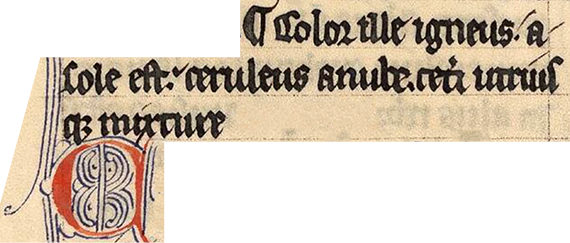 ¶ Color ille igneus. a
sole est. ceruleus a nube. cet̃i utrius
qꝫ mixture